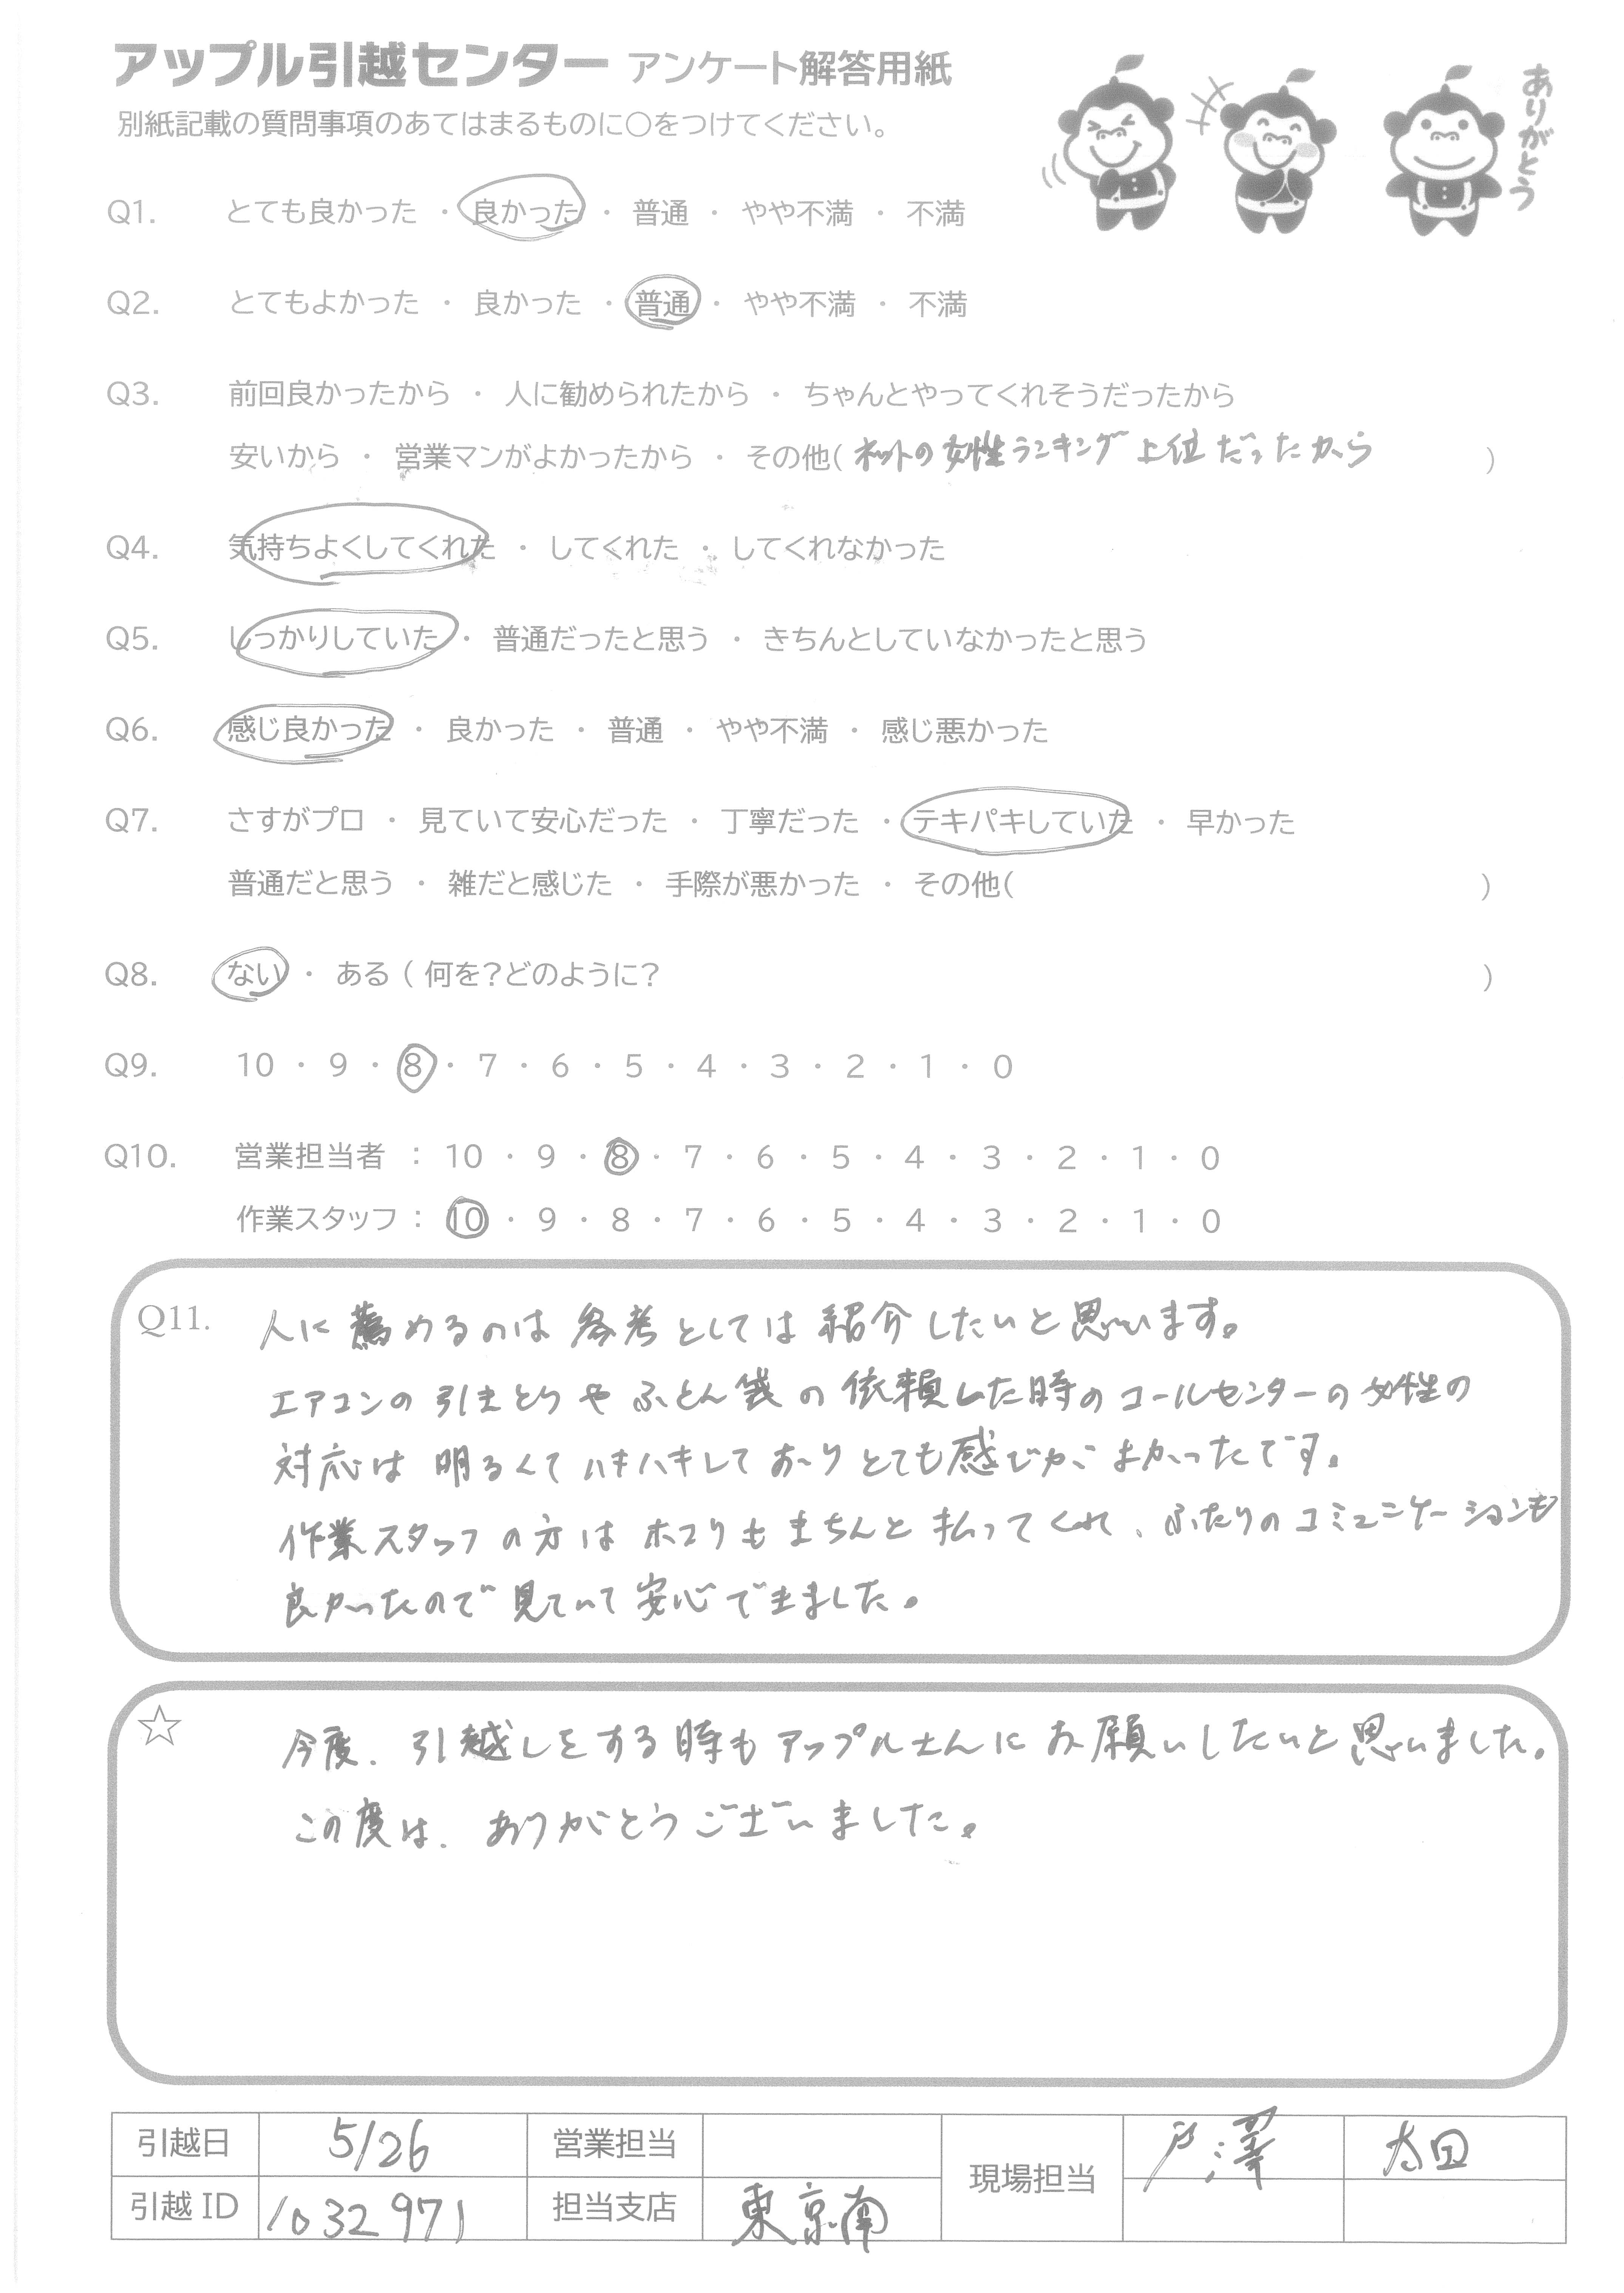 アップル引越センター アンケート解答用紙
ありがとう
別紙記載の質問事項のあてはまるものに〇をつけてください。
Q1. とても良かった ・ 良かった ・ 普通 ・ やや不満 ・ 不満
Q2. とてもよかった ・ 良かった ・ 普通 ・ やや不満 ・ 不満
Q3. 前回良かったから ・ 人に勧められたから ・ ちゃんとやってくれそうだったから
安いから ・ 営業マンがよかったから ・ その他( ネットの女性ランキング上位だったから )
Q4. 気持ちよくしてくれた ・ してくれた ・ してくれなかった
Q5. しっかりしていた ・ 普通だったと思う ・ きちんとしていなかったと思う
Q6. 感じ良かった ・ 良かった ・ 普通 ・ やや不満 ・ 感じ悪かった
Q7. さすがプロ ・ 見ていて安心だった ・ 丁寧だった ・ テキパキしていた ・ 早かった
普通だと思う ・ 雑だと感じた ・ 手際が悪かった ・ その他( )
Q8. ない ・ ある ( 何を?どのように? )
Q9. 10 ・ 9 ・ 8 ・ 7 ・ 6 ・ 5 ・ 4 ・ 3 ・ 2 ・ 1 ・ 0
Q10. 営業担当者 : 10 ・ 9 ・ 8 ・ 7 ・ 6 ・ 5 ・ 4 ・ 3 ・ 2 ・ 1 ・ 0
作業スタッフ : 10 ・ 9 ・ 8 ・ 7 ・ 6 ・ 5 ・ 4 ・ 3 ・ 2 ・ 1 ・ 0
Q11. 人に薦めるのは参考としては紹介したいと思います。
エアコンの引きとりやふとん袋の依頼した時のコールセンターの女性の
対応は明るくてハキハキしておりとても感じがよかったです。
作業スタッフの方はホコリもきちんと払ってくれ、ふたりのコミュニケーションも
良かったので見ていて安心できました。
☆ 今度、引越しをする時もアップルさんにお願いしたいと思いました。
この度は、ありがとうございました。
引越日 5/26 営業担当 現場担当 戸澤 太田
引越ID 1032971 担当支店 東京南